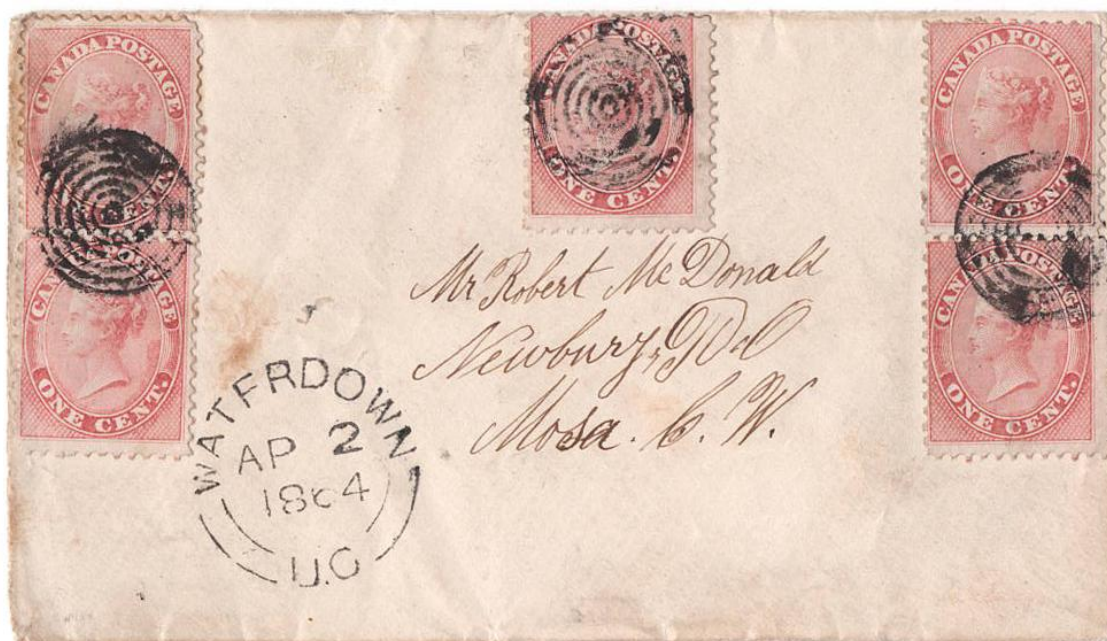 CANADA POSTAGE
CENT.
CANADA POSTAGE
ONE CENT.
CANADA POSTAGE
ONE CENT.
CANADA POSTAGE
ONE CENT.
CANADA POSTAGE
ONE CENT.
Mr Robert McDonald
Newbury,
Mosa. C. W.
WATERDOWN
AP 2
1864
U.C